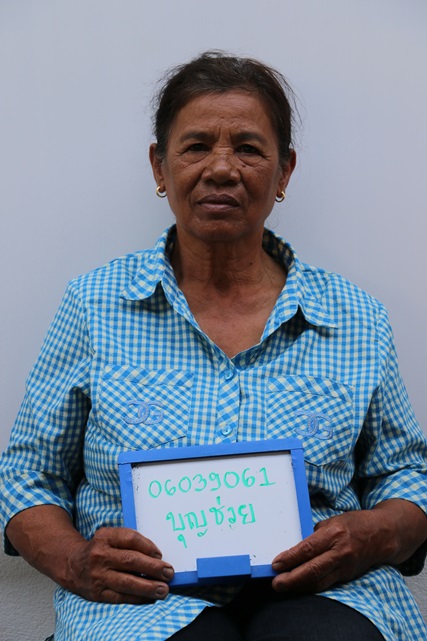 06039061
บุญช่วย